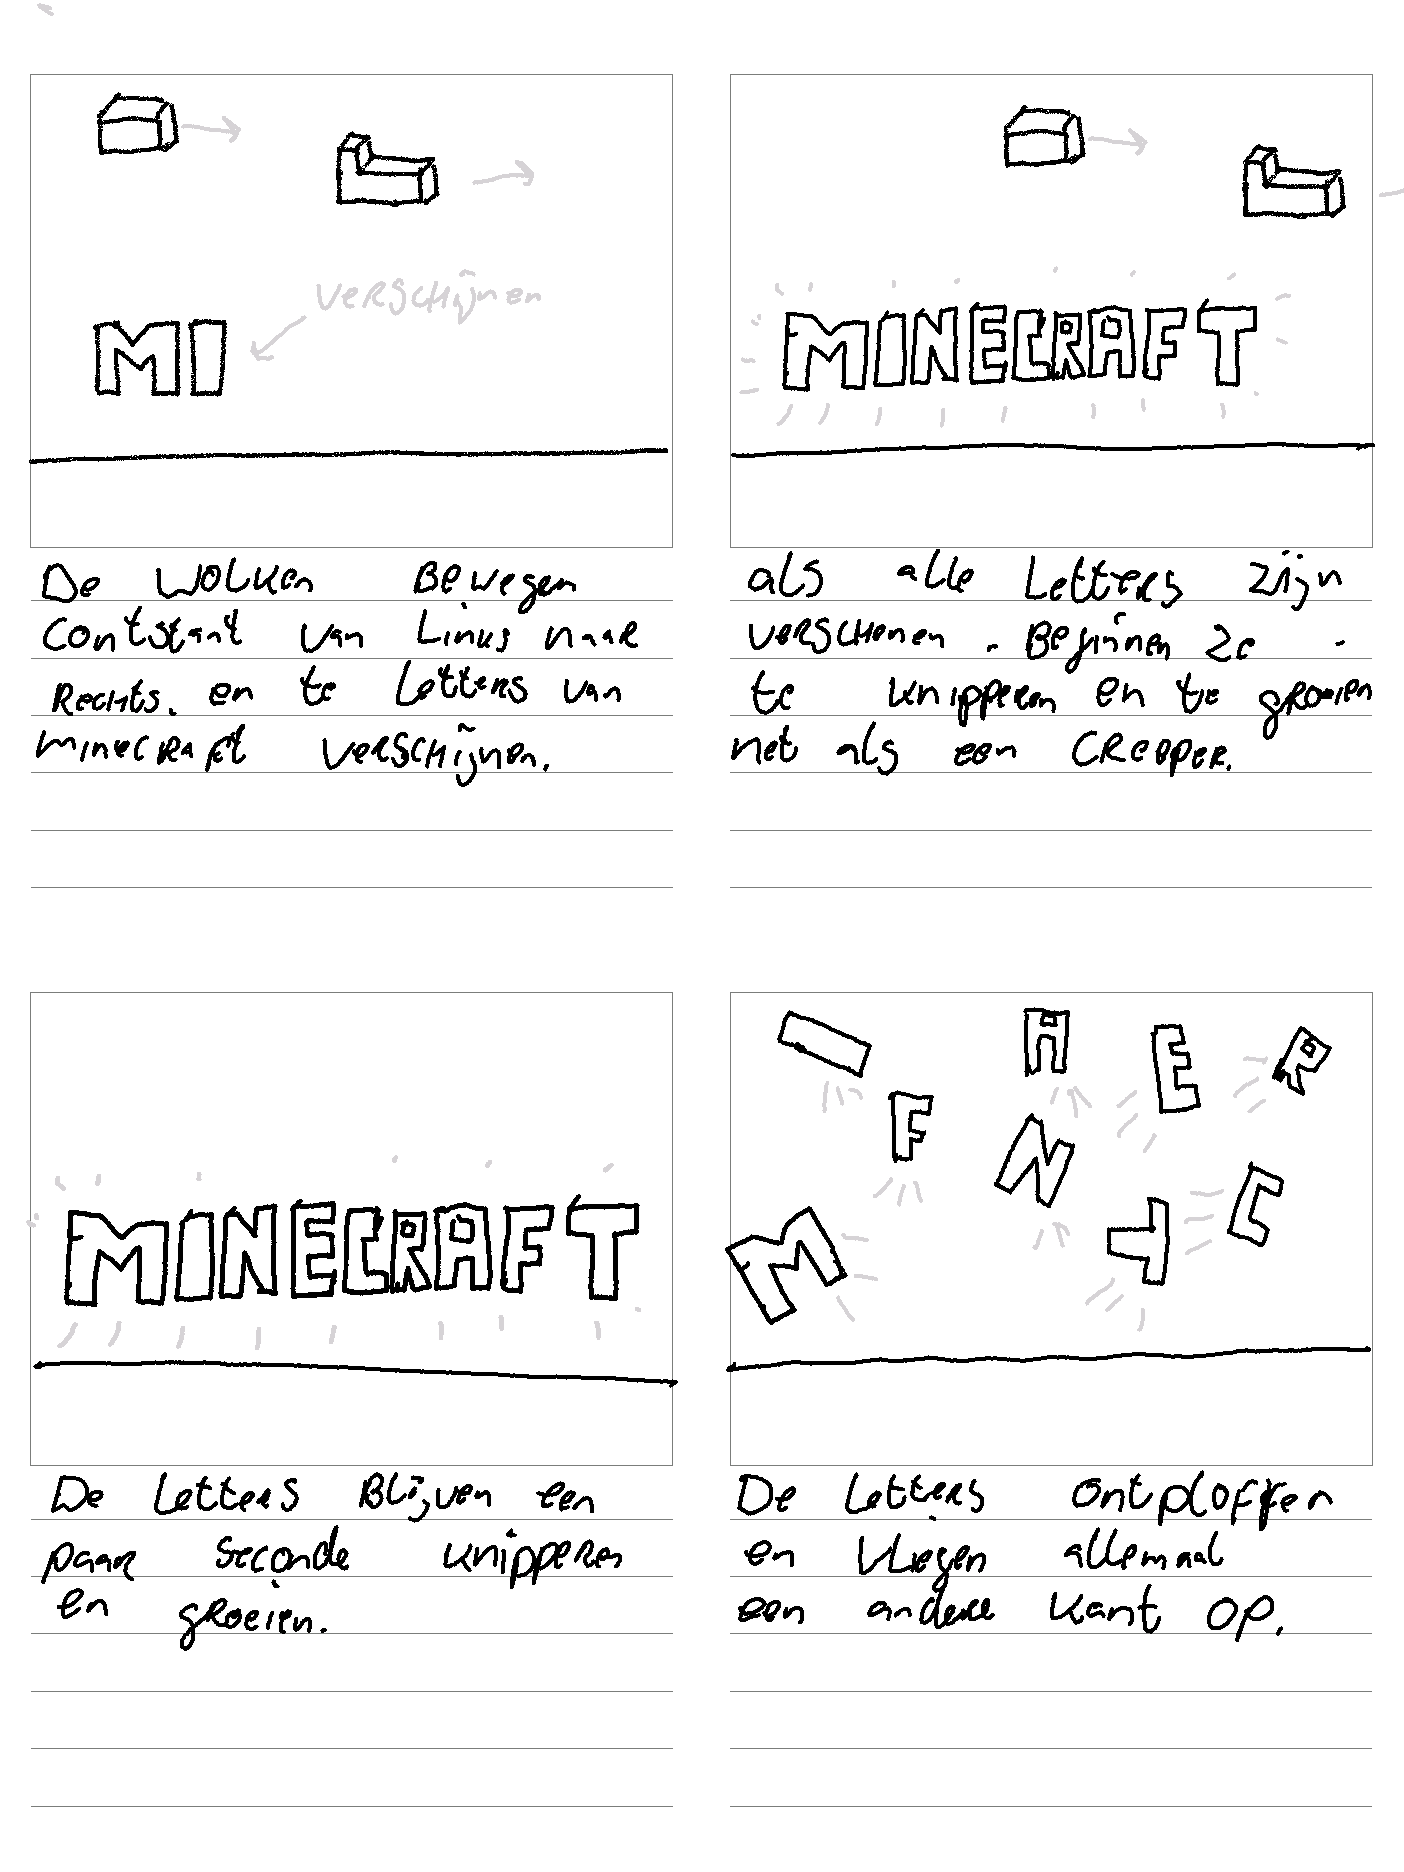 verschijnen
MI
De wolken bewegen
contstant van links naar
rechts. en te letters van
minecraft verschijnen.
MINECRAFT
als alle letters zijn
verschenen. Beginnen ze
te knipperen en te groeien
net als een CREEPER.
MINECRAFT
De letters blijven een
paar seconde knipperen
en groeien.
I A E R
F N
M T C
De letters ontploffen
en vliegen allemaal
een andere kant op.